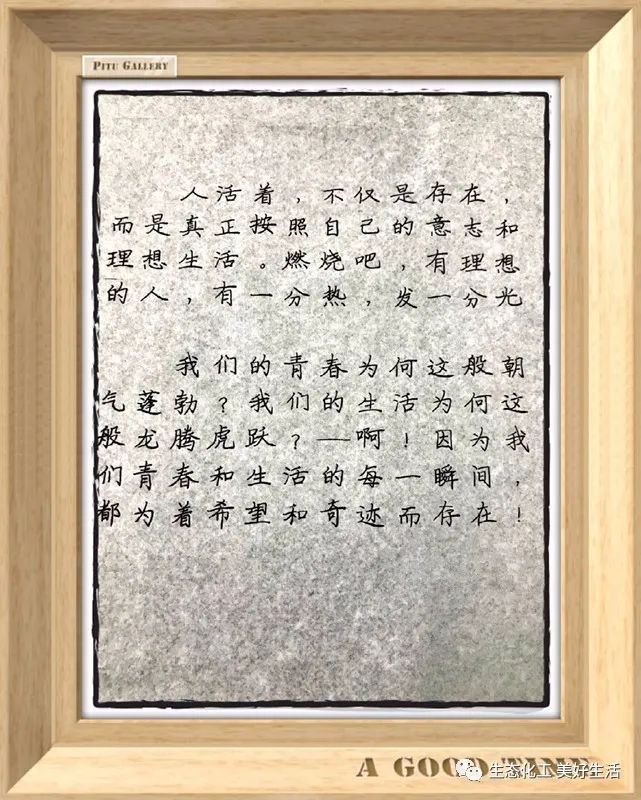 PITU GALLERY
人活着，不仅是存在，
而是真正按照自己的意志和
理想生活。燃烧吧，有理想
的人，有一分热，发一分光
我们的青春为何这般朝
气蓬勃？我们的生活为何这
般龙腾虎跃？—啊！因为我
们青春和生活的每一瞬间，
都为着希望和奇迹而存在！
A GOOD
生态化工美好生活